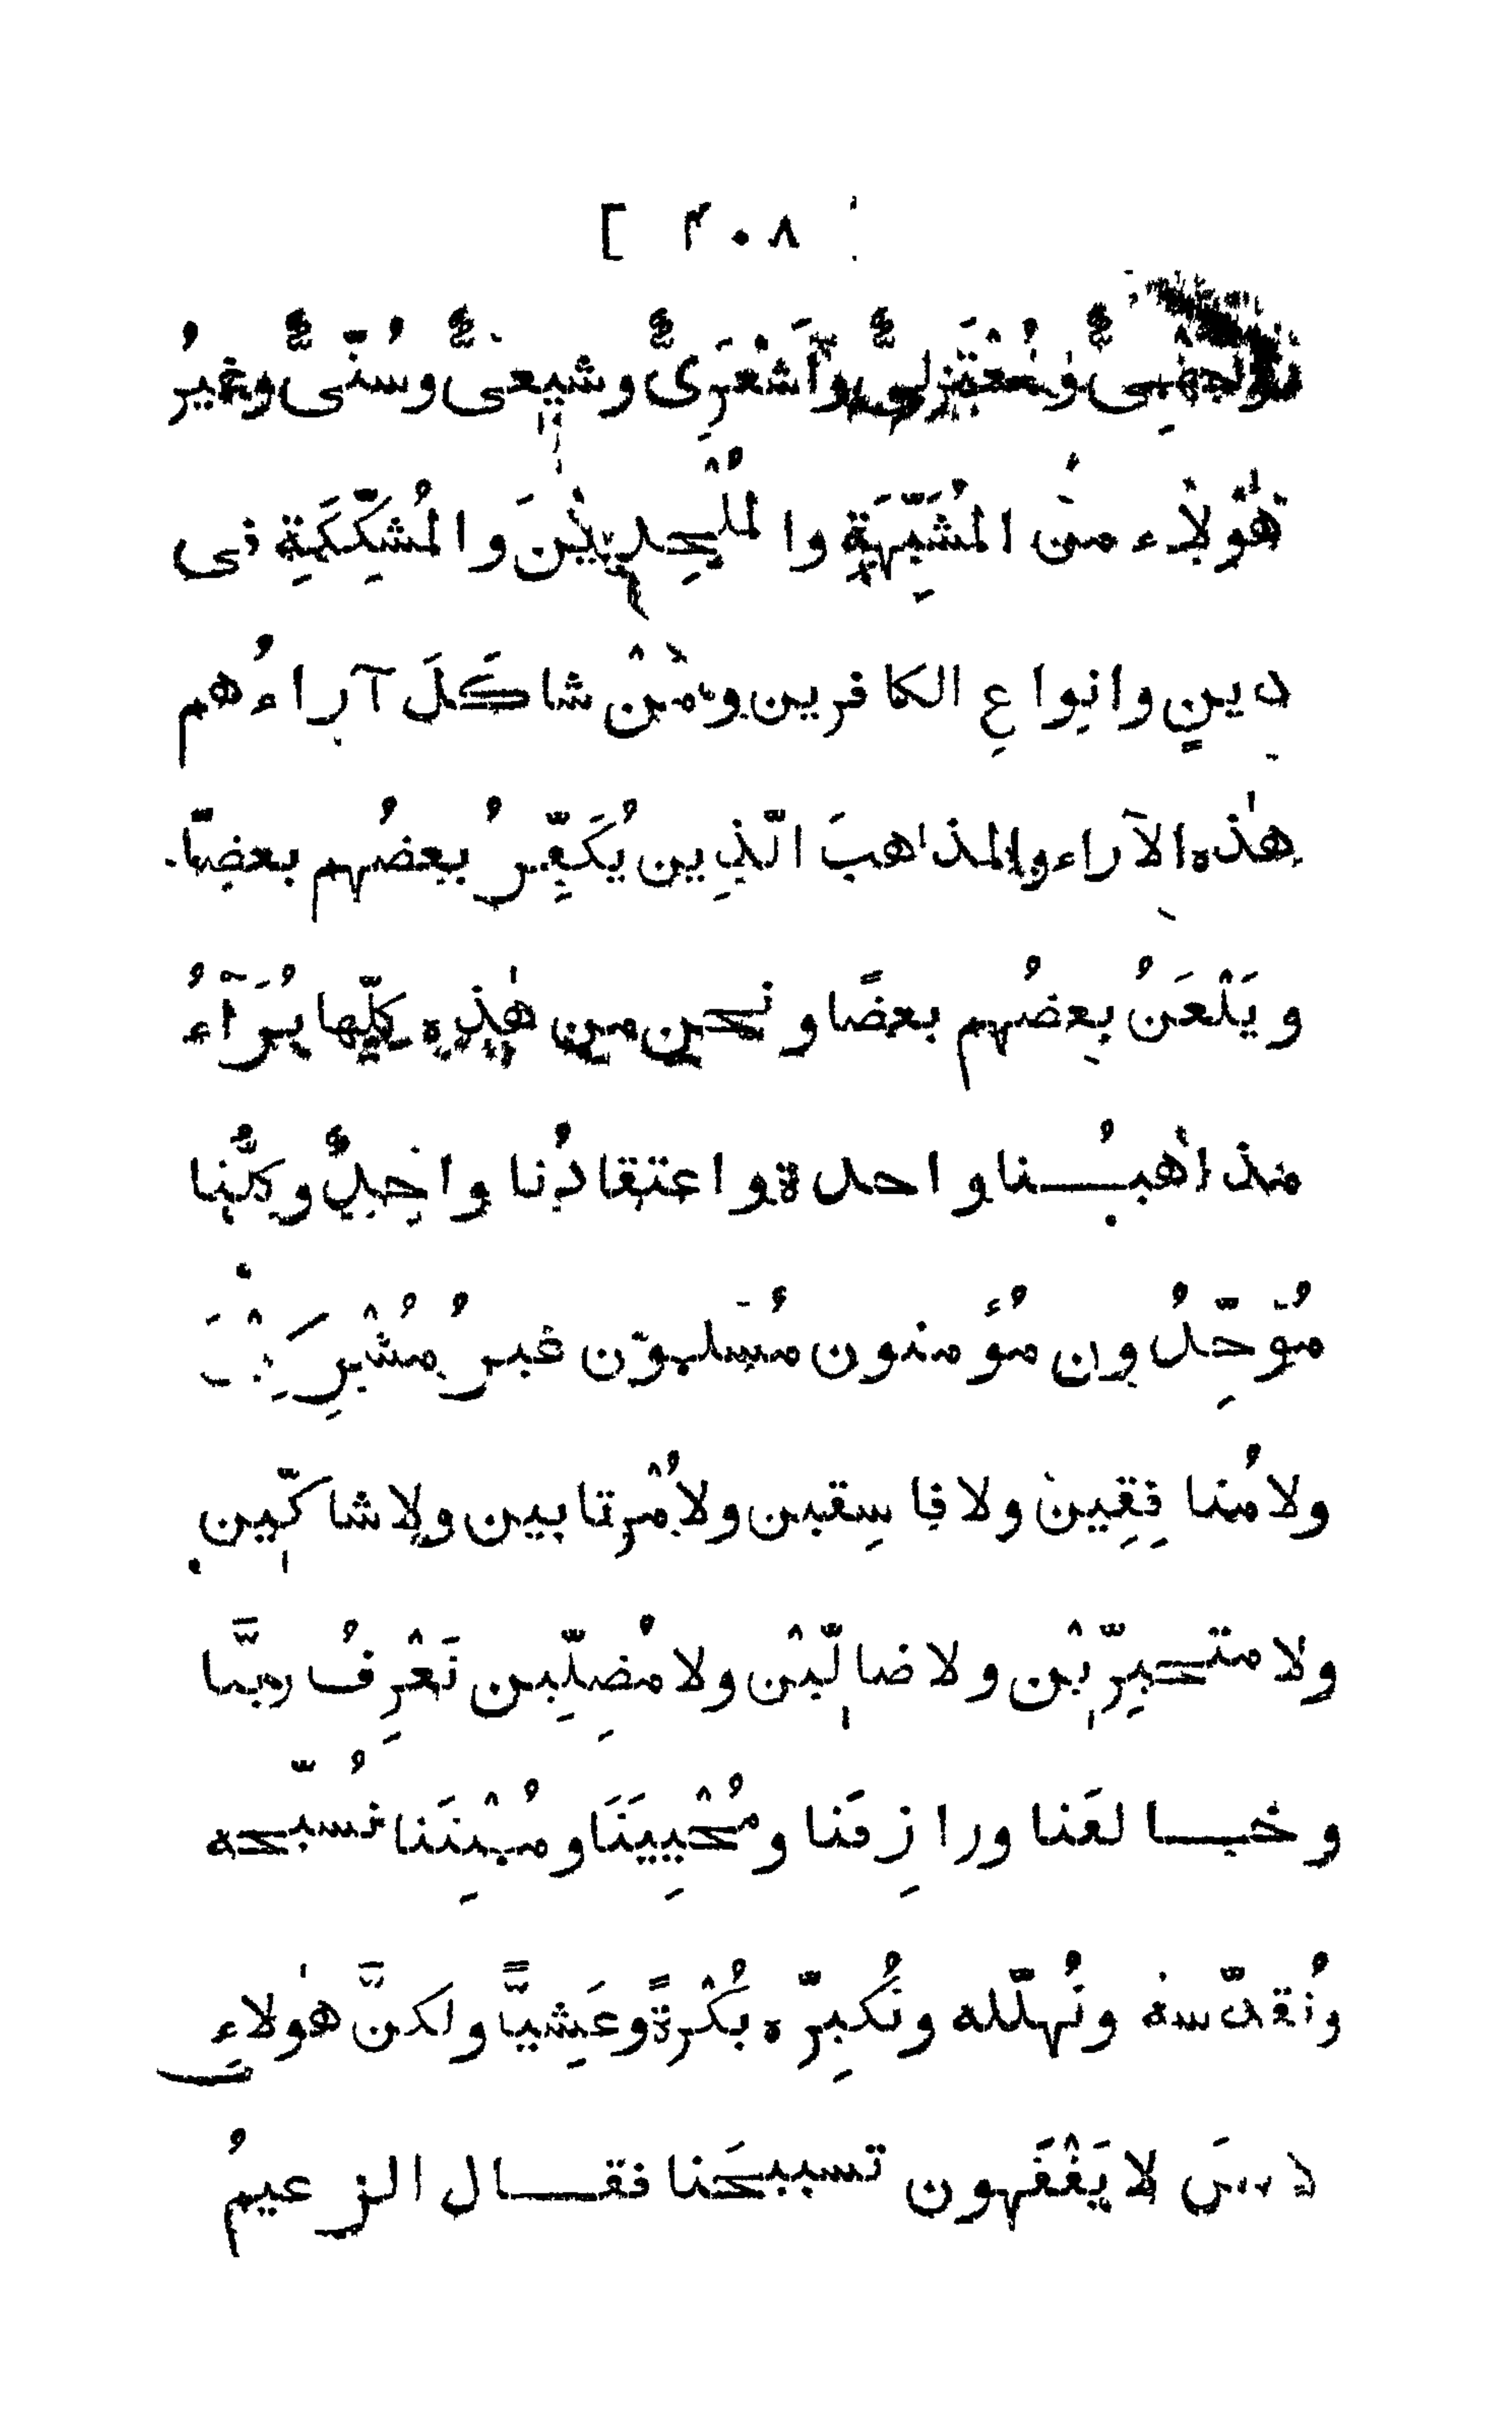 [ ٣٠٨
وجهمىٌّ ومُعْتَزِلىٌّ وأَشْعَرِىٌّ وشيعىٌّ وسُنّىٌّ وغيرُ
هٰؤُلاء من المُشَبِّهَةِ والمُلْحِدِيْنَ والمُشكِّكَةِ فى
دينٍ وانواعِ الكافرين ومَنْ شاكَلَ آراءُهم
هٰذه الآراء والمذاهبَ الّذِين يُكَفِّرُ بعضُهم بعضًا
ويَلْعَنُ بعضُهم بعضًا ونحن من هٰذه كلّها بُرَآءُ
مذاهبُنا واحدة واعتقادُنا واحدٌ وكلُّنا
مُوَحِّدُون مُؤمنون مُسلمون غيرُ مُشْرِكِيْنَ
ولا مُنافِقِين ولا فاسِقين ولا مُرْتابين ولا شاكّين
ولا متحيِّرِيْن ولا ضالّيْن ولا مُضِلِّين نَعْرِفُ ربَّنا
وخالقَنا ورازِقَنا ومُحْيِيَنَا ومُمِيْتَنا نُسبّحه
ونُقدّسه ونُهلّله ونُكبِّره بُكْرةً وعَشِيًّا ولكنَّ هٰولاءِ
لا يَفْقَهون تسبيحَنا فقال الزعيمُ